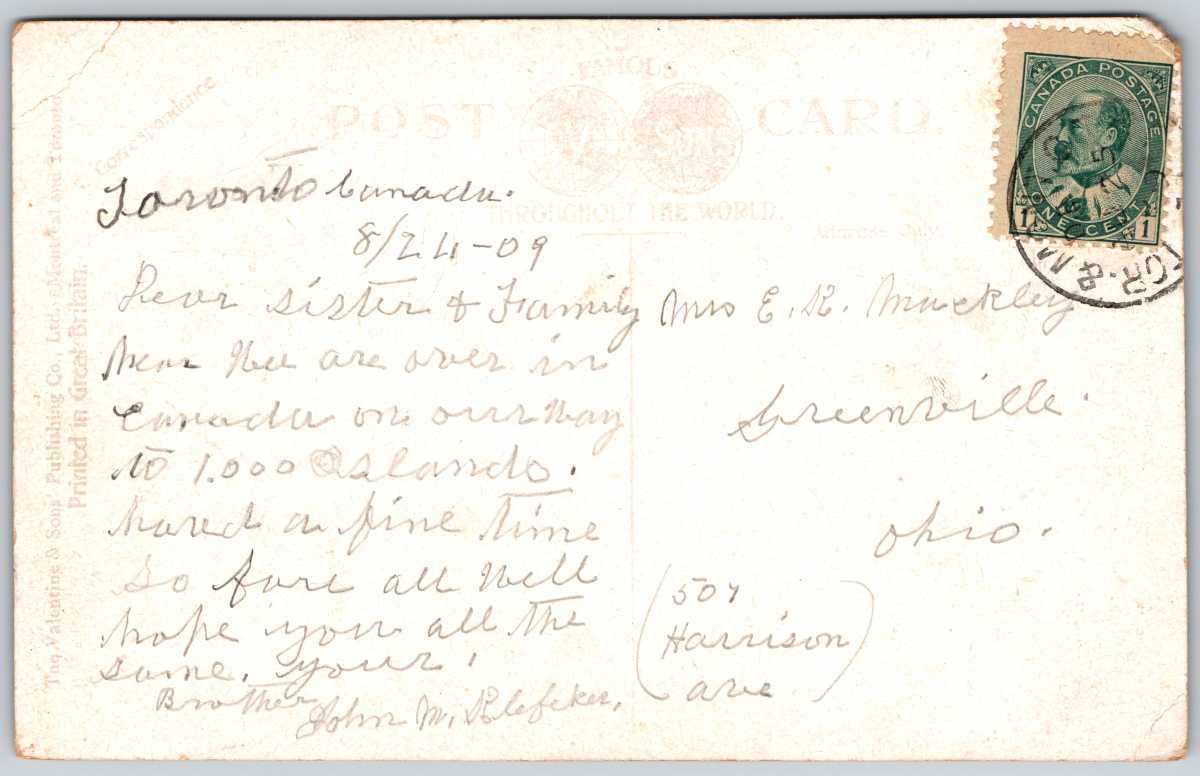 Correspondence
FAMOUS
POST CARD.
V & Sons
THROUGHOUT THE WORLD.
Address Only
The Valentine & Sons' Publishing Co., Ltd., Montreal and Toronto
Printed in Great Britain.
CANADA POSTAGE
1 ONE CENT 1
TOR. & M
Toronto Canada.
8/24-09
Dear sister & Family
hear We are over in
Canada on our Way
to 1.000 Islands.
haved a fine time
So fare all Well
hope you all the
same. your
Brother
John M. Klefeker.
Mrs E. K. Muckley
Greenville.
Ohio.
(507
Harrison
ave)